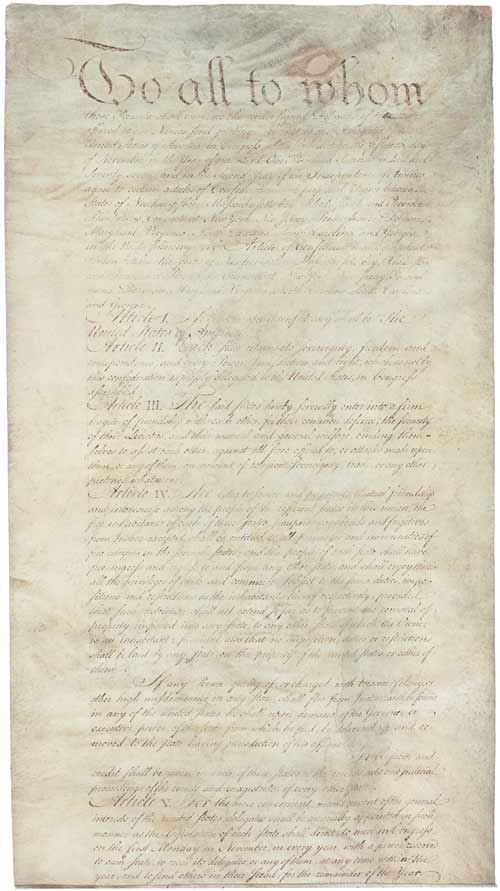 To all to whom
these Presents shall come, we the under signed Delegates of the States
affixed to our Names send greeting. Whereas the Delegates of the
United States of America in Congress assembled did on the fifteenth day
of November in the Year of our Lord One Thousand Seven Hundred and
Seventy seven, and in the Second Year of the Independence of America
agree to certain articles of Confederation and perpetual Union between the
States of Newhampshire, Massachusetts-bay, Rhodeisland and Providence
Plantations, Connecticut, New York, New Jersey, Pennsylvania, Delaware,
Maryland, Virginia, North-Carolina, South-Carolina and Georgia
in the Words following, viz. Articles of Confederation and perpetual
Union between the States of
and Georgia.
Article I. The Stile of this confederacy shall be "The
United States of America."
Article II. Each state retains its sovereignty, freedom and
independence, and every Power, Jurisdiction and right, which is not by
this confederation expressly delegated to the United States, in Congress
assembled.
Article III. The said states hereby severally enter into a firm
league of friendship with each other, for their common defence, the security
of their Liberties, and their mutual and general welfare, binding them-
selves to assist each other, against all force offered to, or attacks made upon
them, or any of them, on account of religion, sovereignty, trade, or any other
pretence whatever.
Article IV. The better to secure and perpetuate mutual friendship
and intercourse among the people of the different states in this union, the
free inhabitants of each of these states, paupers, vagabonds and fugitives
from Justice excepted, shall be entitled to all privileges and immunities of
free citizens in the several states; and the people of each state shall have
free ingress and regress to and from any other state, and shall enjoy therein
all the privileges of trade and commerce, subject to the same duties, impo-
sitions and restrictions as the inhabitants thereof respectively, provided
that such restriction shall not extend so far as to prevent the removal of
property imported into any state, to any other state of which the Owner
is an inhabitant; provided also that no imposition, duties or restriction
shall be laid by any state, on the property of the united states, or either of
them.
If any Person guilty of, or charged with treason, felony, or
other high misdemeanor in any state, shall flee from Justice, and be found
in any of the united states, he shall upon demand of the Governor or
executive power, of the state from which he fled, be delivered up and re-
moved to the state having jurisdiction of his offence.
Full faith and
credit shall be given in each of these states to the records, acts and judicial
proceedings of the courts and magistrates of every other state.
Article V. For the more convenient management of the general
interests of the united states, delegates shall be annually appointed in such
manner as the legislature of each state shall direct, to meet in Congress
on the first Monday in November, in every year, with a power reserved
to each state, to recal its delegates, or any of them, at any time within the
year, and to send others in their stead, for the remainder of the Year.